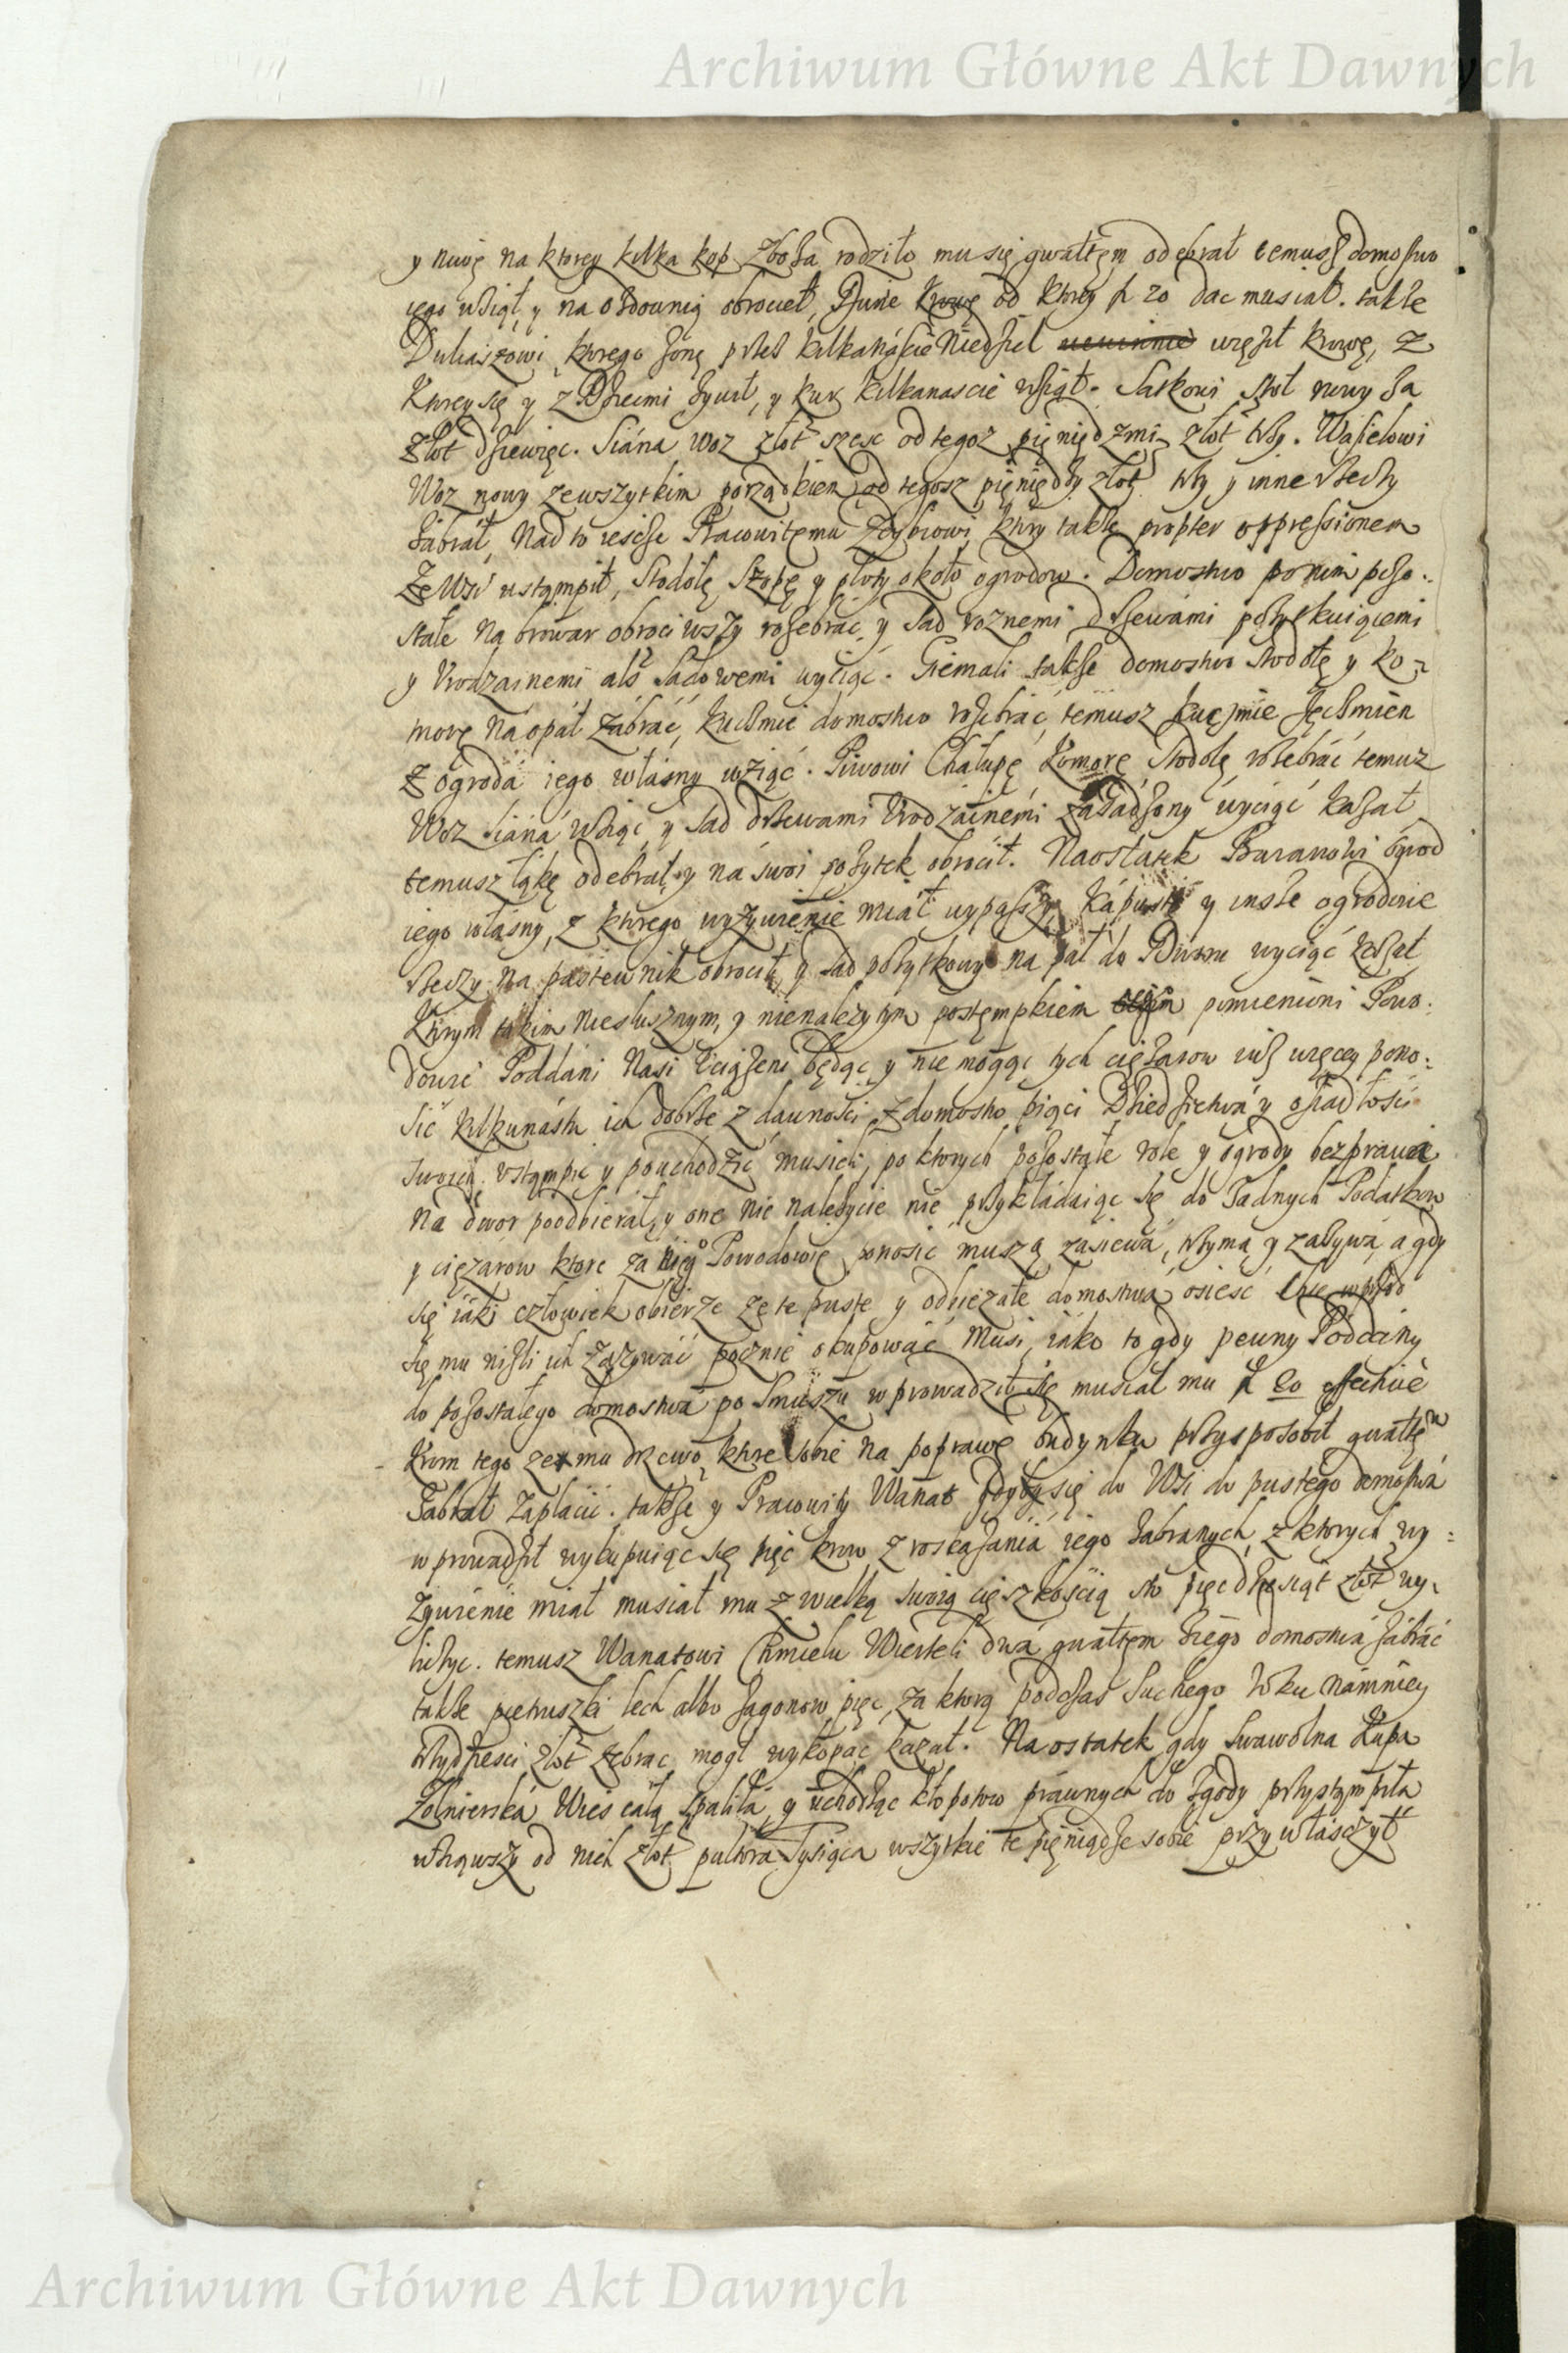 Archiwum Główne Akt Dawnych
y niwę na ktorey kilka kop zboża rodziło mu się gwałtęm odebrał temusz domostwo
iego wziął, y na obrocieł, krowę od ktorey fl 20 dac musiał. także
Duliaszowi ktorego żonę przez kilkanascie Niedziel więził krowę, z
Ktorey się y z Dziecmi żywił, y kur kilkanascie wziął. stoł nowy za
złot dziewięc. Siana woz złot szesc od tegoz pięniędzmi złot trzy. Wasielowi
Woz nowy zewszytkim porządkiem od tegosz pięniędzy złot trzy y inne rzeczy
żabrał, Nad to iescze Pracowitemu ktory także propter oppressionem
Ze Wsi ustąmpił, Stodołę Szopę y płoty około ogrodow. Domostwo po nim pozo:
stałe na browar obrociwszy rozebrać y Sad roznemi drzewami pożytkuiącemi
y Vrodzainemi als Sadowemi wyciąc. także domostwo stodołę y ko-
morę na opał zabrać, Kuczmie domostwo rozebrać, temusz Kuczmie Jęczmien
z ogroda iego własny wziąć. Piwowi Chałupę Komorę Stodołę rozebrać temuz
Woz siana wziąc, y Sad drzewami Vrodzainemi zasadzony wyciąć kazał
temusz łąkę odebrał, y na swoi pożytek obrocił. Naostatek Baranowi ogrod
iego własny, z ktorego wyżywienie miał wypasszy Kapustę y insze ogrodowe
rzeczy na pastewnik obrocił, y sad pożytkowy na pał do Dworu wyciąć kazał
Ktorym takim niesłusznym, y nienależytym postęmpkiem pomienioni Powo:
dowie Poddani Nasi będąc y nie mogąc tych ciężarow iusz więcey pono:
sić kilkunastu ich dobrze z dawnosci z domostw pięci Dziedzictwa y osiadłości
swoich vstąmpić y pouchodzić musieli, po ktorych pozostałe role y ogrody bezprawia
na dwor poodbierał, y one nie należycie nie przykładaiąc się do żadnych Podatkow
y ciężarow ktore za niego Powodowie ponosić muszą zasiewa, trzyma y zażywa, a gdy
się iaki człowiek obierze że te puste y odbieżałe domostwa osieść chce wprzod
się mu niżli ich zażywać pocznie okupować musi, iako to gdy pewny Poddany
do pozostałego domostwa po wprowadził się musiał mu fl
Krom tego ze mu drzewo, ktore sobie na poprawę budynku przysposobił gwałtęm
żabrał zapłacić. także y Pracowity Wanat gdyby się do Wsi do pustego domostwa
wprowadził wykupuiąc się pięć krow z roskazania iego zabranych, z ktorych wy:
żywienie miał musiał mu z wielką swoią cięszkością sto pięcdziesiąt złot wy-
liczyc. temusz Wanatowi Chmielu Wierteli dwa gwałtęm z iego domostwa zabrać
także pietruszki lech albo zagonow pięc, za ktorą podczas suchego roku namniey
trzydziesci złot zebrac mogł wykopac kazał. Na ostatek gdy Swawolna Kupa
Żołnierska Wies całą spaliła, y uchodząc kłopotow prawnych do zgody przystąmpiła
wziąwszy od nich złot pułtora Tysiąca wszytkie te pięniądze sobie przywłasczył
Archiwum Główne Akt Dawnych